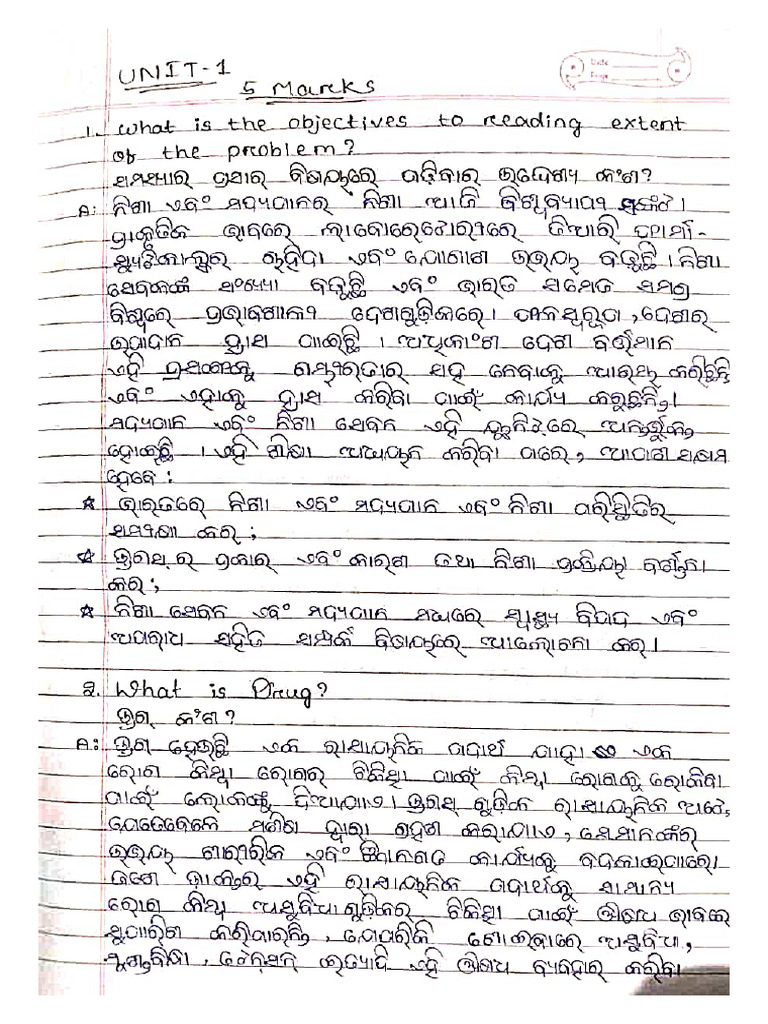 UNIT-1
5 Marcks
Date
Page
1. What is the objectives to reading extent
of the problem?
ସମସ୍ୟାର ପ୍ରସାର ବିଷୟରେ ପଢ଼ିବାର ଉଦ୍ଦେଶ୍ୟ କ'ଣ?
A: ନିଶା ଏବଂ ମଦ୍ୟପାନର ନିଶା ଆଜି ବିଶ୍ୱବ୍ୟାପୀ ସଙ୍କଟ।
ପ୍ରାକୃତିକ ଭାବରେ ଲାବୋରେଟୋରୀରେ ତିଆରି ଫାର୍ମା-
ସ୍ୟୁଟିକାଲ୍ସର ଚାହିଦା ଏବଂ ଯୋଗାଣ ଉଭୟ ବଢୁଛି। ନିଶା
ସେବନଙ୍କ ସଂଖ୍ୟା ବଢୁଛି ଏବଂ ଭାରତ ସମେତ ସମଗ୍ର
ବିଶ୍ୱରେ ପ୍ରଭାବଶାଳୀ ଦେଶଗୁଡ଼ିକରେ। ଫଳସ୍ୱରୂପ, ଦେଶର
ଉତ୍ପାଦନ ହ୍ରାସ ପାଇଛି। ଅଧିକାଂଶ ଦେଶ ବର୍ତ୍ତମାନ
ଏହି ପ୍ରସଙ୍ଗକୁ ଗମ୍ଭୀରତାର ସହ ନେବାକୁ ଆରମ୍ଭ କରିଛନ୍ତି
ଏବଂ ଏହାକୁ ହ୍ରାସ କରିବା ପାଇଁ କାର୍ଯ୍ୟ କରୁଛନ୍ତି।
ମଦ୍ୟପାନ ଏବଂ ନିଶା ସେବନ ଏହି ୟୁନିଟରେ ଅନ୍ତର୍ଭୁକ୍ତ
ହୋଇଛି। ଏହି ଶିକ୍ଷା ଅଧ୍ୟୟନ କରିବା ପରେ, ଆପଣ ସକ୍ଷମ
ହେବେ:
☆ ଭାରତରେ ନିଶା ଏବଂ ମଦ୍ୟପାନ ଏବଂ ନିଶା ପରିସ୍ଥିତିର
ସମୀକ୍ଷା କର;
☆ ଡ୍ରଗସ୍ ର ପ୍ରକାର ଏବଂ କାରଣ ତଥା ନିଶା ପ୍ରକ୍ରିୟା ବର୍ଣ୍ଣନା
କର;
☆ ନିଶା ସେବନ ଏବଂ ମଦ୍ୟପାନ ମଧ୍ୟରେ ସ୍ୱାସ୍ଥ୍ୟ ବିପଦ ଏବଂ
ଅପରାଧ ସହିତ ସମ୍ପର୍କ ବିଷୟରେ ଆଲୋଚନା କର।
2. What is Drug?
ଡ୍ରଗ୍ କ'ଣ?
A: ଡ୍ରଗ ହେଉଛି ଏକ ରାସାୟନିକ ପଦାର୍ଥ ଯାହା ଏକ
ରୋଗ କିମ୍ବା ରୋଗର ଚିକିତ୍ସା ପାଇଁ କିମ୍ବା ରୋଗକୁ ରୋକିବା
ପାଇଁ ଲୋକଙ୍କୁ ଦିଆଯାଏ। ଡ୍ରଗସ୍ ଗୁଡ଼ିକ ରାସାୟନିକ ଅଟେ,
ଯେତେବେଳେ ମଣିଷ ଦ୍ୱାରା ଗ୍ରହଣ କରାଯାଏ, ସେମାନଙ୍କର
ଉଭୟ ଶାରୀରିକ ଏବଂ କାର୍ଯ୍ୟକୁ ବଦଳାଇପାରେ।
ଜଣେ ଡାକ୍ତର ଏହି ରାସାୟନିକ ପଦାର୍ଥକୁ ସାମାନ୍ୟ
ରୋଗ କିମ୍ବା ଅସୁବିଧାଗୁଡ଼ିକର ଚିକିତ୍ସା ପାଇଁ ଔଷଧ ଭାବରେ
ସୁପାରିଶ କରିପାରନ୍ତି, ଯେପରିକି ଶୋଇବାରେ ଅସୁବିଧା,
ମୁଣ୍ଡବିନ୍ଧା, ଟେନସନ୍ ଇତ୍ୟାଦି ଏହି ଔଷଧ ବ୍ୟବହାର କରିବା